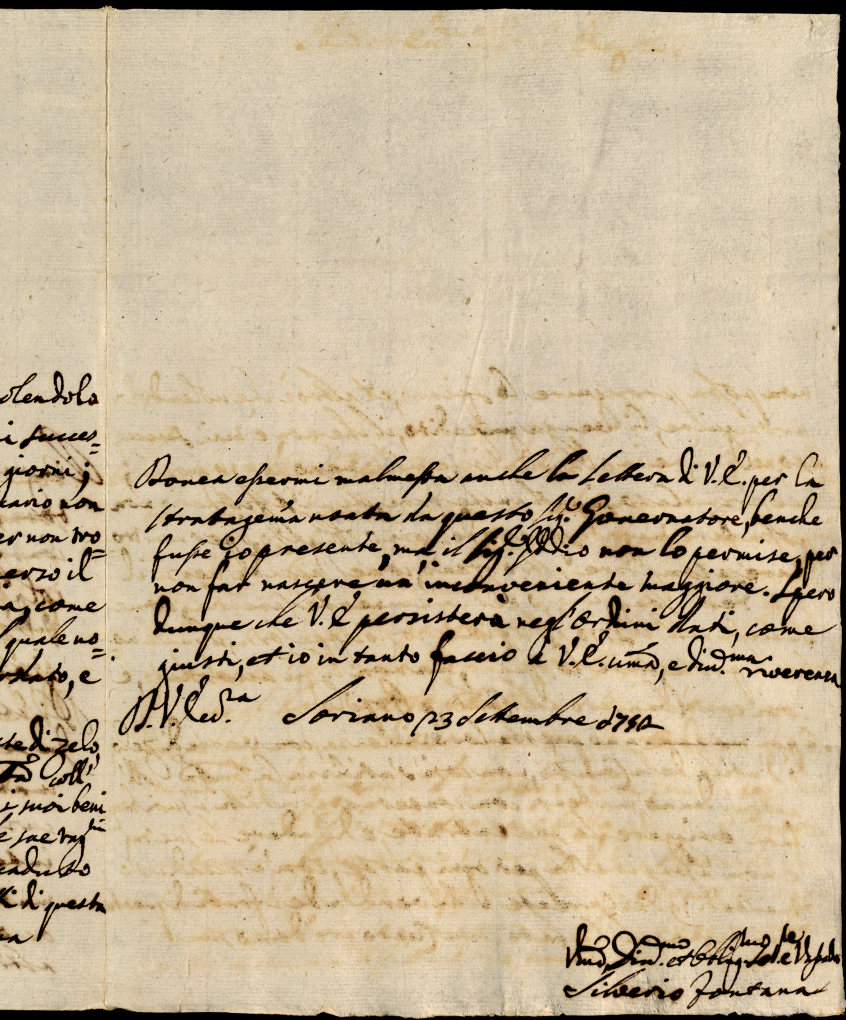 olendola
i succes=
giorni;
uario non
er non tro=
erso il
a, come
quale no=
ordato, e
te di zelo
coll'
i suoi beni
e sue rag.ni
enduto
di questa
Dovea essermi malmessa anche la lettera di V.E. per la
stratagem̃a usata da questo Sig.r Governatore, benche
fusse io presente, ma il Sig.r Iddio non lo permise, per
non far nascere un' inconveniente maggiore. Spero
dunque che V.E. persisterà negl'ordini dati, come
giusti, et io in tanto faccio a V.E. um̃a, e div.ma riverenza
D. V. Ecc.za Soriano 23 Settembre 1750
Um̃o Div.mo et Oblig.mo Se.re e Vassallo
Silverio Fontana